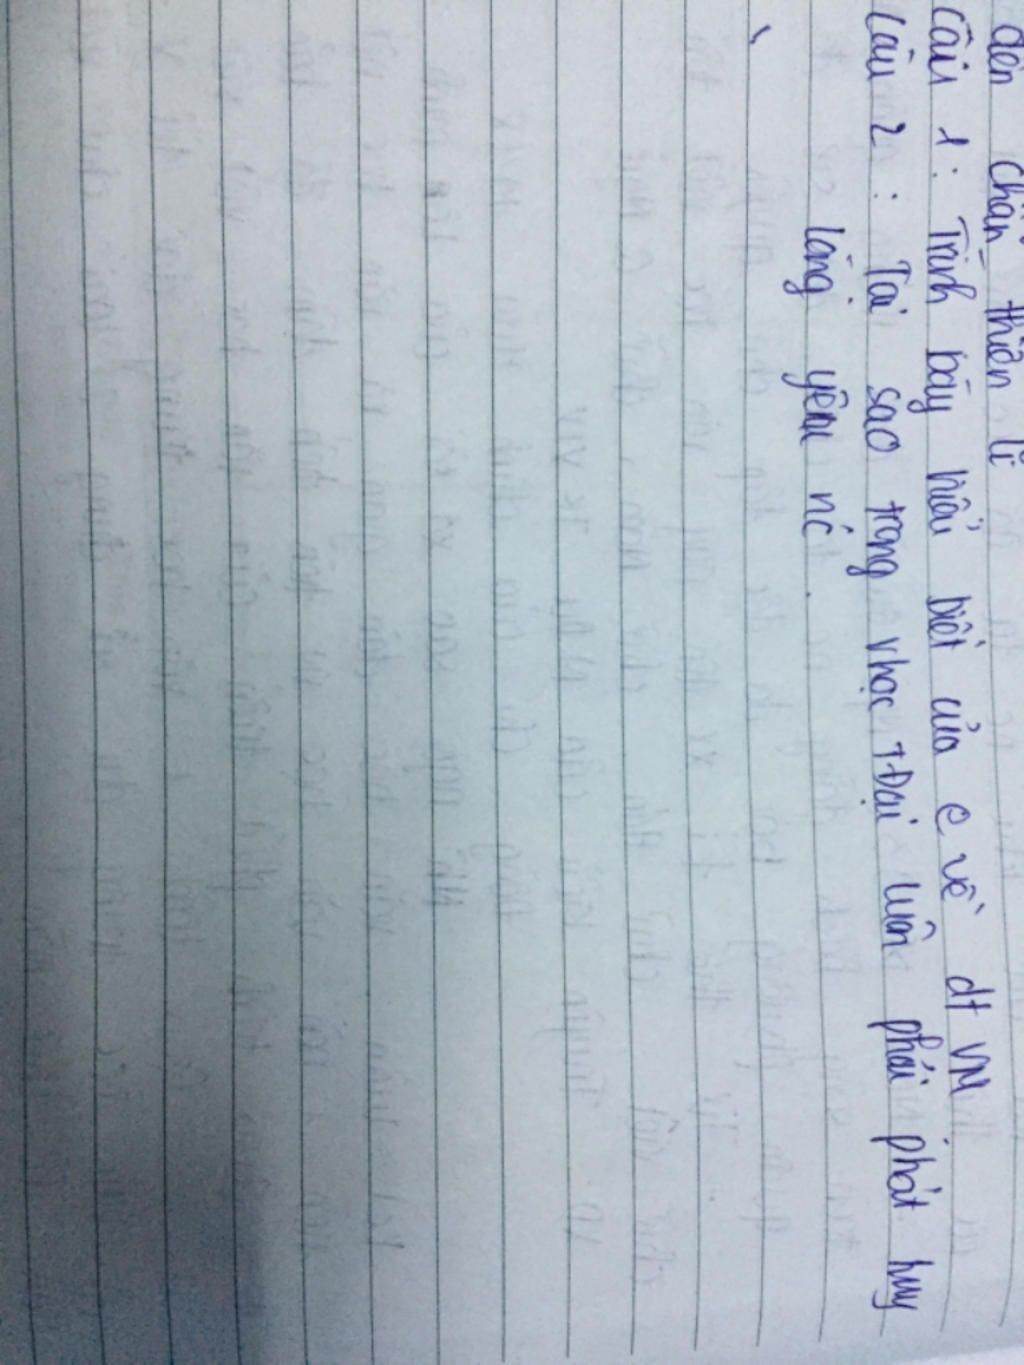 đến chân thiện lí
Câu 1 : Trình bày hiểu biết của e về dt VN
Câu 2 : Tại sao trong mọi tđại luôn phải phát huy
lòng yêu nc .